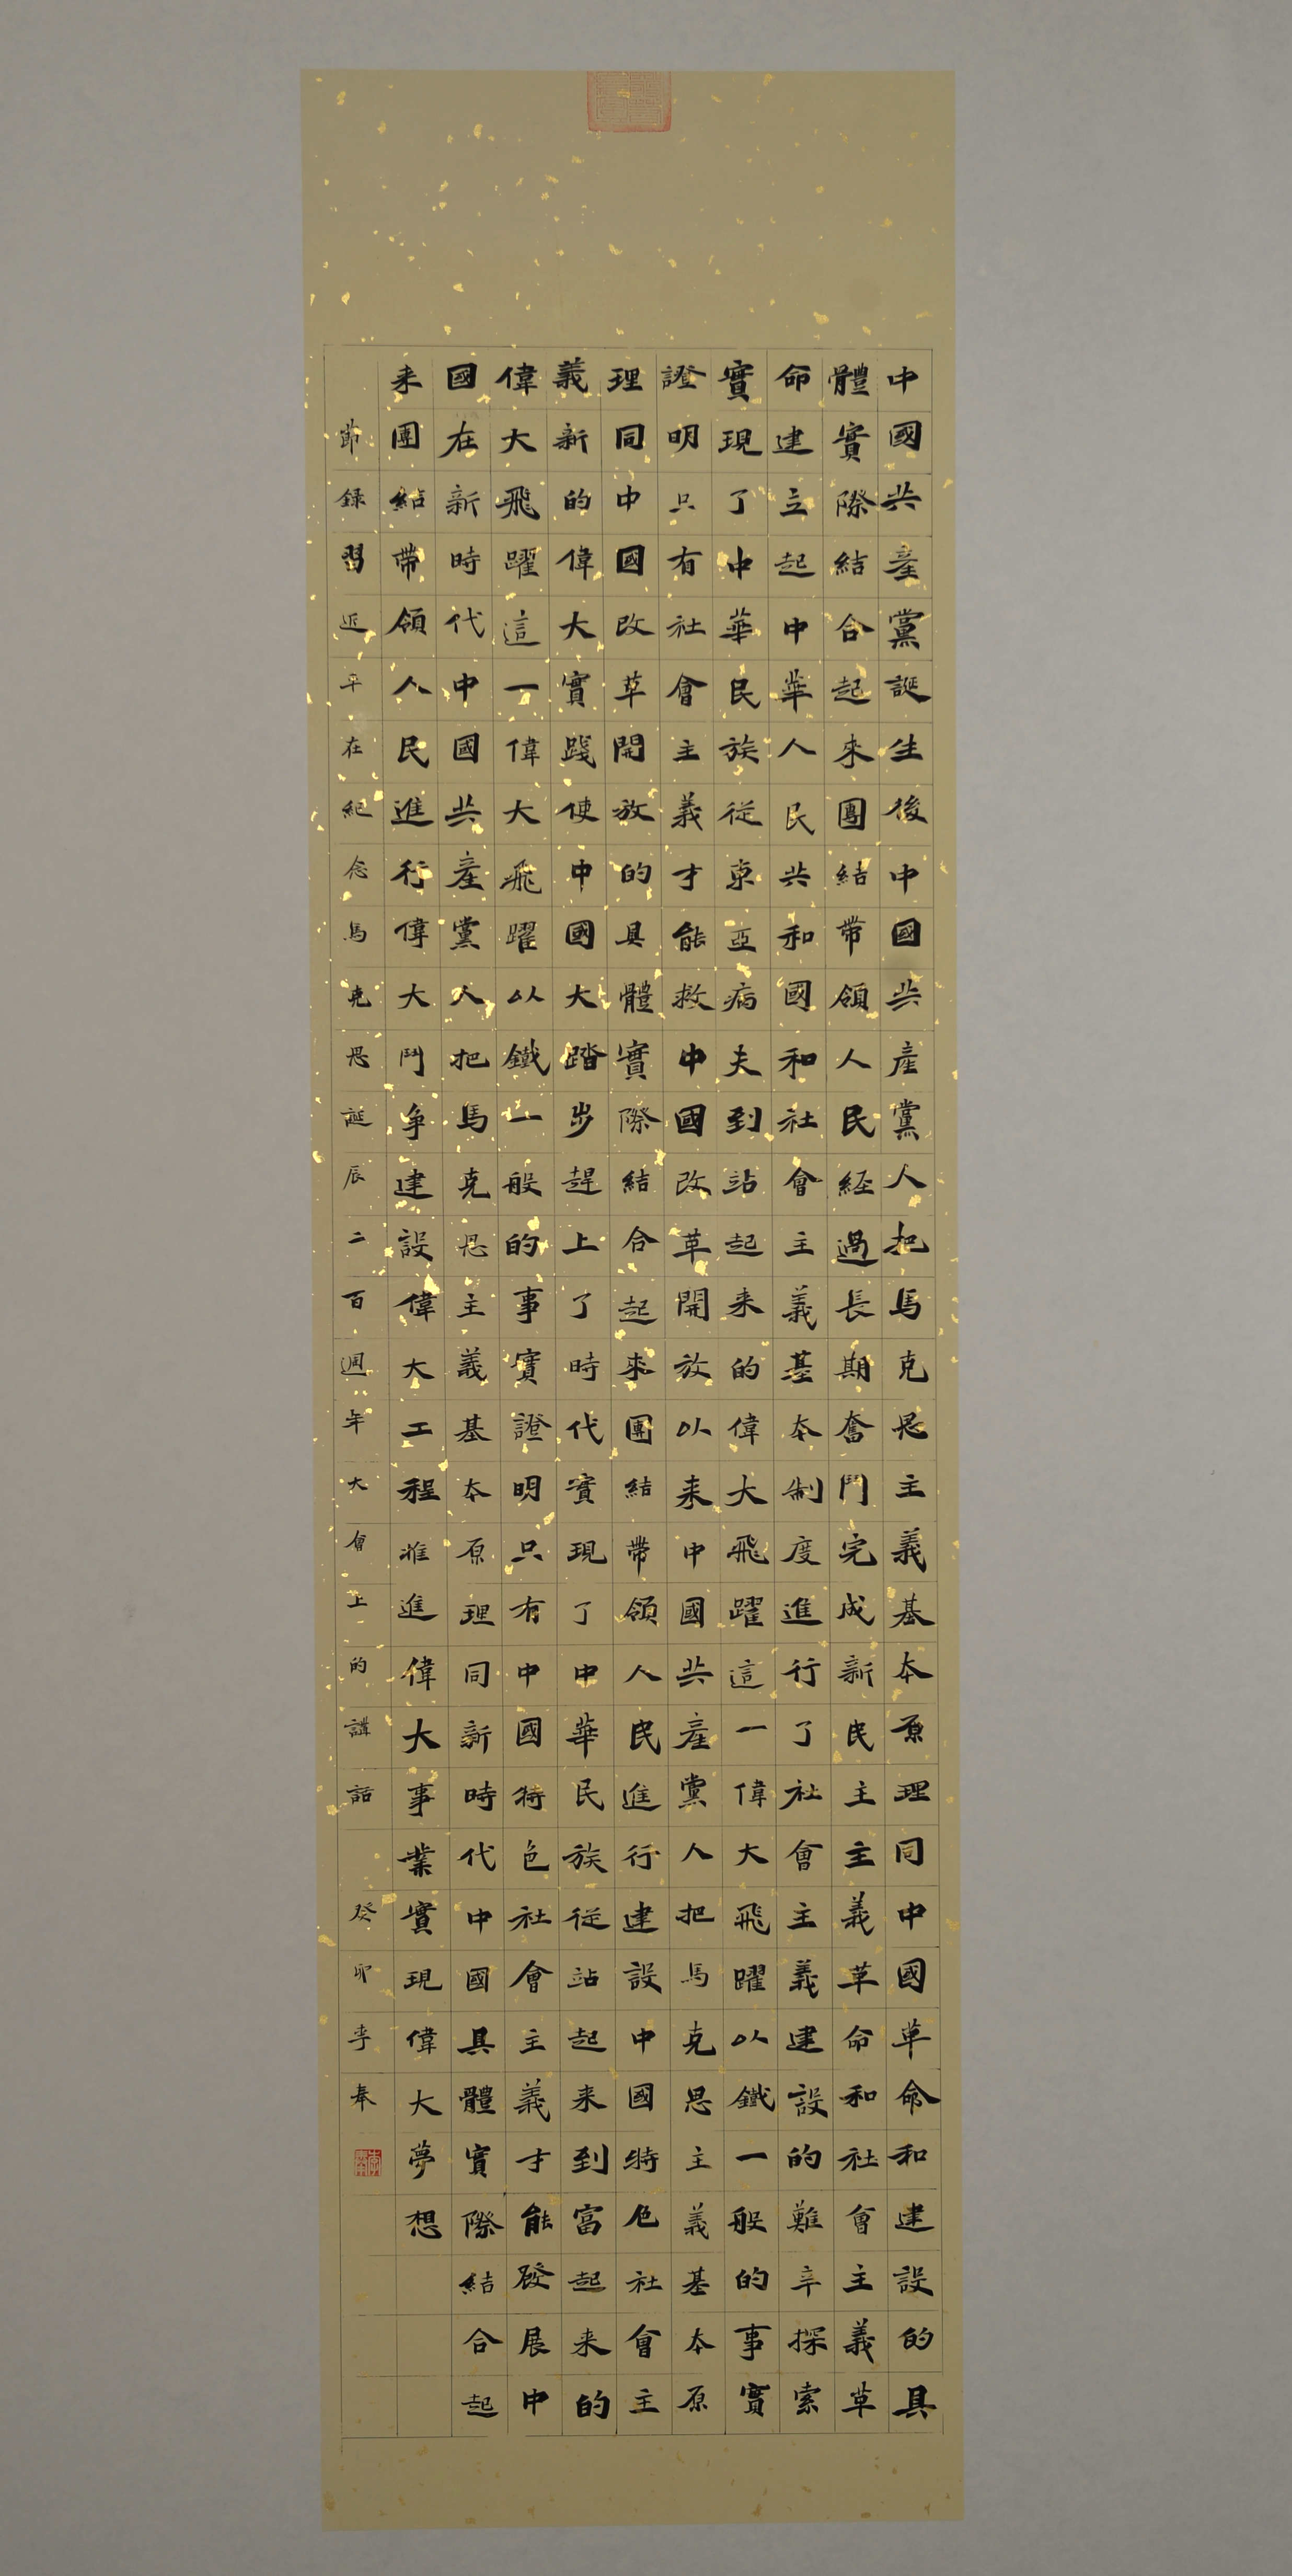 中國共產黨誕生後中國共產黨人把馬克思主義基本原理同中國革命和建設的具
體實際結合起來團結帶領人民經過長期奮鬥完成新民主主義革命和社會主義革
命建立起中華人民共和國和社會主義基本制度進行了社會主義建設的艱辛探索
實現了中華民族從東亞病夫到站起来的偉大飛躍這一偉大飛躍以鐵一般的事實
證明只有社會主義才能救中國改革開放以来中國共產黨人把馬克思主義基本原
理同中國改革開放的具體實際結合起來團結帶領人民進行建設中國特色社會主
義新的偉大實踐使中國大踏步趕上了時代實現了中華民族從站起来到富起来的
偉大飛躍這一偉大飛躍以鐵一般的事實證明只有中國特色社會主義才能發展中
國在新時代中國共產黨人把馬克思主義基本原理同新時代中國具體實際結合起
来團結帶領人民進行偉大鬥争建設偉大工程推進偉大事業實現偉大夢想
節錄習近平在紀念馬克思誕辰二百週年大會上的講話 癸卯李奉